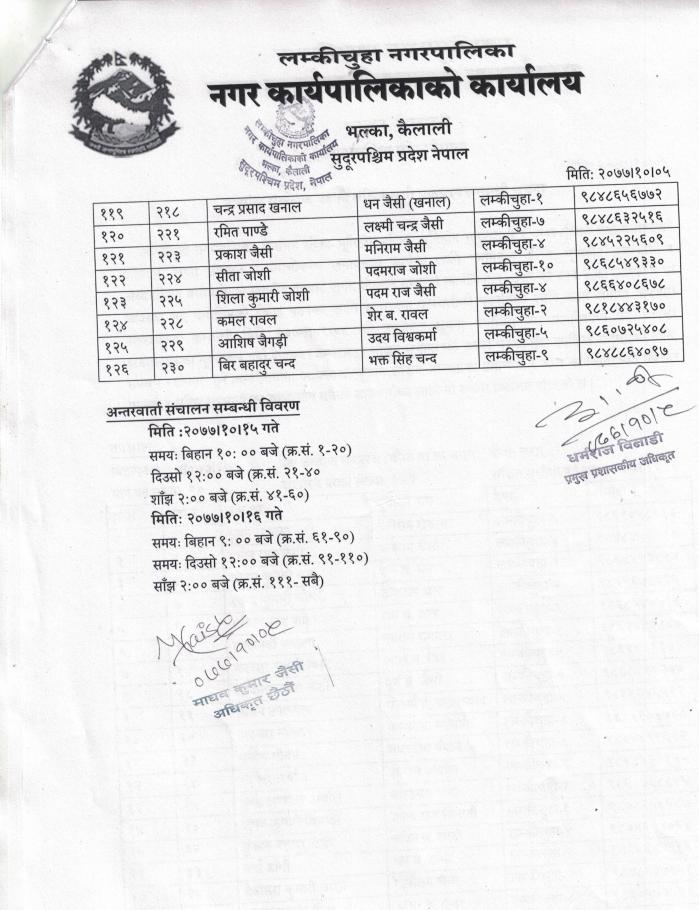 लम्कीचुहा नगरपालिका
नगर कार्यपालिकाको कार्यालय
भल्का, कैलाली
सुदूरपश्चिम प्रदेश नेपाल
लम्कीचुहा नगरपालिका
नगर कार्यपालिकाको कार्यालय
भल्का, कैलाली
सुदूरपश्चिम प्रदेश, नेपाल
मिति: २०७७।१०।०५
११९ २१८ चन्द्र प्रसाद खनाल धन जैसी (खनाल) लम्कीचुहा-१ ९८४८६५६७७२
१२० २२१ रमित पाण्डे लक्ष्मी चन्द्र जैसी लम्कीचुहा-७ ९८४८६३२५१६
१२१ २२३ प्रकाश जैसी मनिराम जैसी लम्कीचुहा-४ ९८४५२२५६०९
१२२ २२४ सीता जोशी पदमराज जोशी लम्कीचुहा-१० ९८६८५४९३३०
१२३ २२५ शिला कुमारी जोशी पदम राज जैसी लम्कीचुहा-४ ९८६६४०८६७८
१२४ २२८ कमल रावल शेर ब. रावल लम्कीचुहा-२ ९८१८४४३१७०
१२५ २२९ आशिष जैगडी उदय विश्वकर्मा लम्कीचुहा-५ ९८६०७२५४०८
१२६ २३० बिर बहादुर चन्द भक्त सिंह चन्द लम्कीचुहा-९ ९८४८८६४०९७
अन्तरवार्ता संचालन सम्बन्धी विवरण
मिति :२०७७।१०।१५ गते
समय: बिहान १०: ०० बजे (क्र.सं. १-२०)
दिउसो १२:०० बजे (क्र.सं. २१-४०
शाँझ २:०० बजे (क्र.सं. ४१-६०)
मिति: २०७७।१०।१६ गते
समय: बिहान ९: ०० बजे (क्र.सं. ६१-९०)
समय: दिउसो १२:०० बजे (क्र.सं. ९१-११०)
साँझ २:०० बजे (क्र.सं. १११- सबै)
धर्मराज विनाडी
प्रमुख प्रशासकीय अधिकृत
०७७।१०।०५
माधव कुमार जैसी
अधिकृत छैठौं